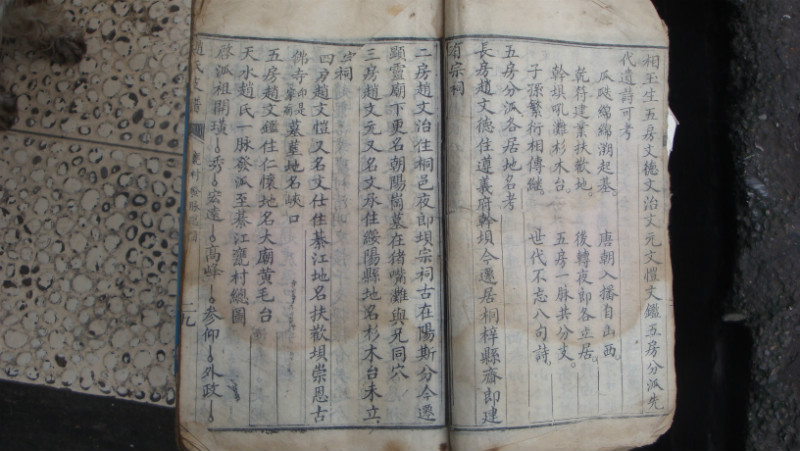 相玉生五房文德文治文元文愷文鑑五房分派先
代遺詩可考
瓜瓞綿綿溯起基 唐朝入播自山西
乾符建業扶歡地 後轉夜郎各立居
幹壩吼灘杉木台 五房一脉共分支
子孫繁衍相傳繼 世代不忘八句詩
五房分派各居地名考
長房趙文德住遵義府幹壩今遷居桐梓縣齋郎建
有宗祠
二房趙文治住桐邑夜郎壩宗祠古在陽斯分今遷
顯靈廟下更名朝陽崗墓在猪嘴灘與兄同穴
三房趙文元又名文承住綏陽縣地名杉木台未立
宗祠
四房趙文愷又名文仕住綦江地名扶歡壩崇恩古
佛寺即是宗祠墓塟地名峽口
五房趙文鑑住仁懷地名大廟黄毛台
天水趙氏一脉發派至綦江甕村總圖
啓派祖開璜 秀 宏達 高峰 参仰 外政
趙氏族譜 甕村 二九